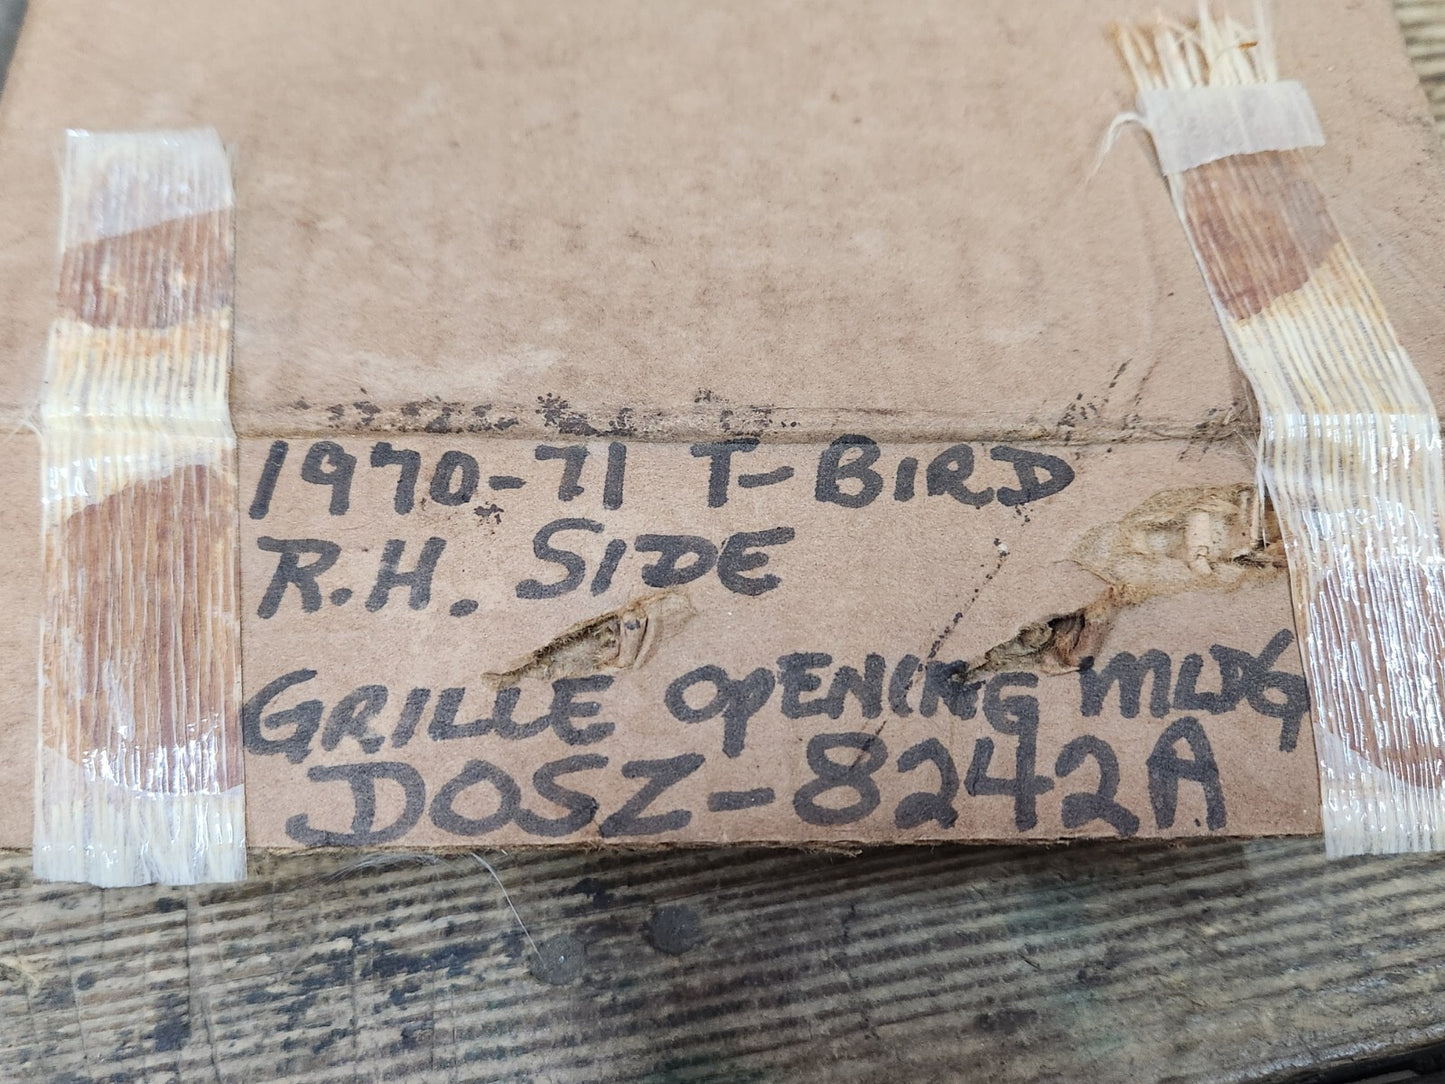 1970-71 T-BIRD
R.H. SIDE
GRILLE OPENING MLDG
DOSZ-8242A